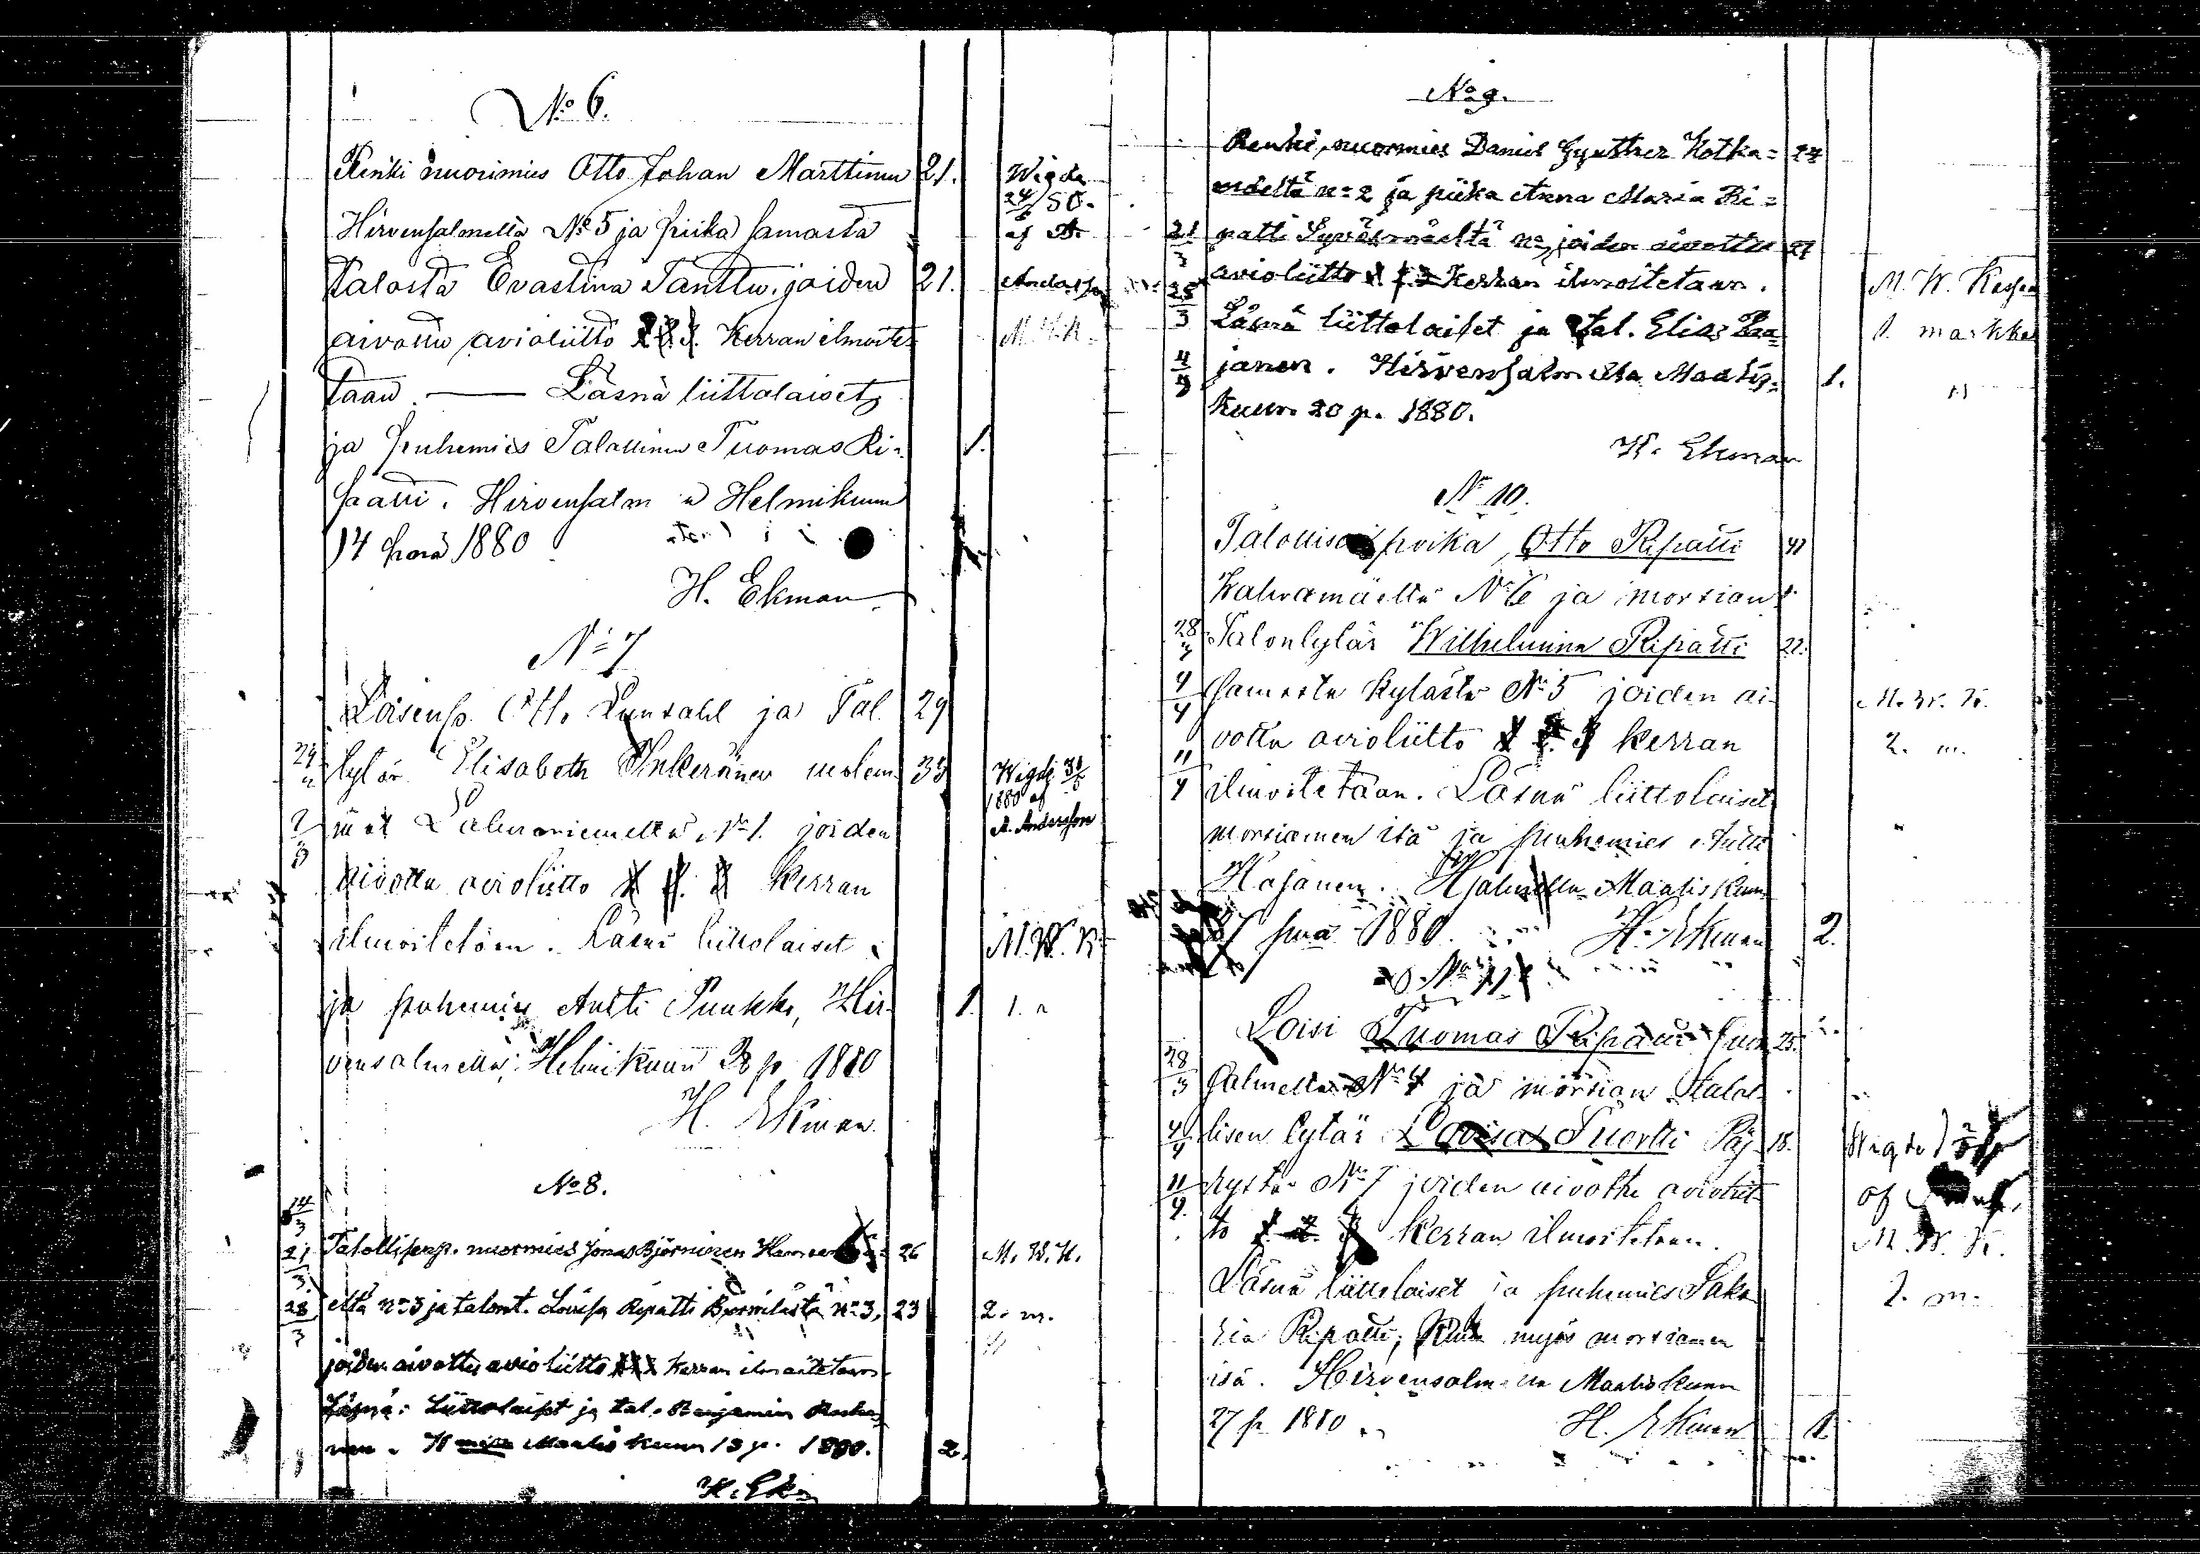 No 6.
Renki nuorimies Otto Johan Marttinen 21.
Hirvensalmella No 5 ja piika samasta
talosta Evastina Tanttu, joiden 21.
aivottu avioliitto 1. 2. 3. Kerran ilmoite-
taan. — Läsnä liittolaiset
ja puhemies Talollinen Tuomas Ri-
patti. Hirvensalm Helmikuun 1.
14 pnä 1880
H. Ekman
Wigda
24/ 80.
af A.
Andersson
M. W. K.
No 7
Loisenp. Otto ja Tal. 29
tytär Elisabeth Inkeränen molem- 33
mat Lahnaniemeltä No 1. joiden
aivottu avioliitto 1. 2. 3. Kerran
ilmoitetaan. Läsnä liittolaiset
ja puhemies Antti Puukko, Hir- 1
vensalmella; Helmikuun 28 p 1880
H. Ekman.
Wigde 31/
1880 af
A. Andersson
M. W. K.
1.
No 8.
14/3
21/3
28/3
Talollisenp. nuormies Jonas Björninen 26
eltä no 3 ja talont. Lovisa Ripatti no 3, 23
joiden aivottu avioliitto 1 2 3 Kerran ilmoitetaan
Läsnä: Liittolaiset ja tal. Benjamin
nen. H Maaliskuun 13 p. 1880. 2.
H. Ek
M. W. K.
2. m.
No 9.
Renki, nuormies Daniel Gynther Kotka= 27
mäeltä no 2 ja piika Anna Maria Ri=
patti Syväsmäeltä no, joiden aivottu 27
avioliitto 1 2 3 Kerran ilmoitetaan.
Läsnä liittolaiset ja Tal. Elias Paa=
janen. Hirvensalmella Maalis= 1.
kuun 20 p. 1880.
H. Ekman
21/3
28/3
4/
M. W.
1. markka
No 10.
Talollisen poika, Otto Ripatti 41
No 6 ja morsian
28/3 Talontytär Wilhelmina Ripatti 22.
4/4 samasta kylästä No 5 joiden ai-
votta avioliitto 1 2 3 kerran
11/4 ilmoitetaan. Läsnä liittolaiset
morsiamen isä ja puhemies Antti
Häjänen. H:salmella Maaliskuun
27 pnä 1880. H. Ekman 2.
M. W. K.
2. m.
No 11
Loisi Tuomas Ripatti 25.
28/3 salmelta No 4 ja morsian talol-
4/4 lisen tytär Lovisa Tuortti Päj- 18.
11/4 No 7 joiden aivottu avioliit-
to 1. 2. 3 kerran ilmoitetaan.
Läsnä liittolaiset ja puhemies Saka-
ria Ripatti, myös morsiamen
isä. Hirvensalmella Maaliskuun
27 p 1880 H. Ekman 1
Wigde
of
M. W. K.
2. m.